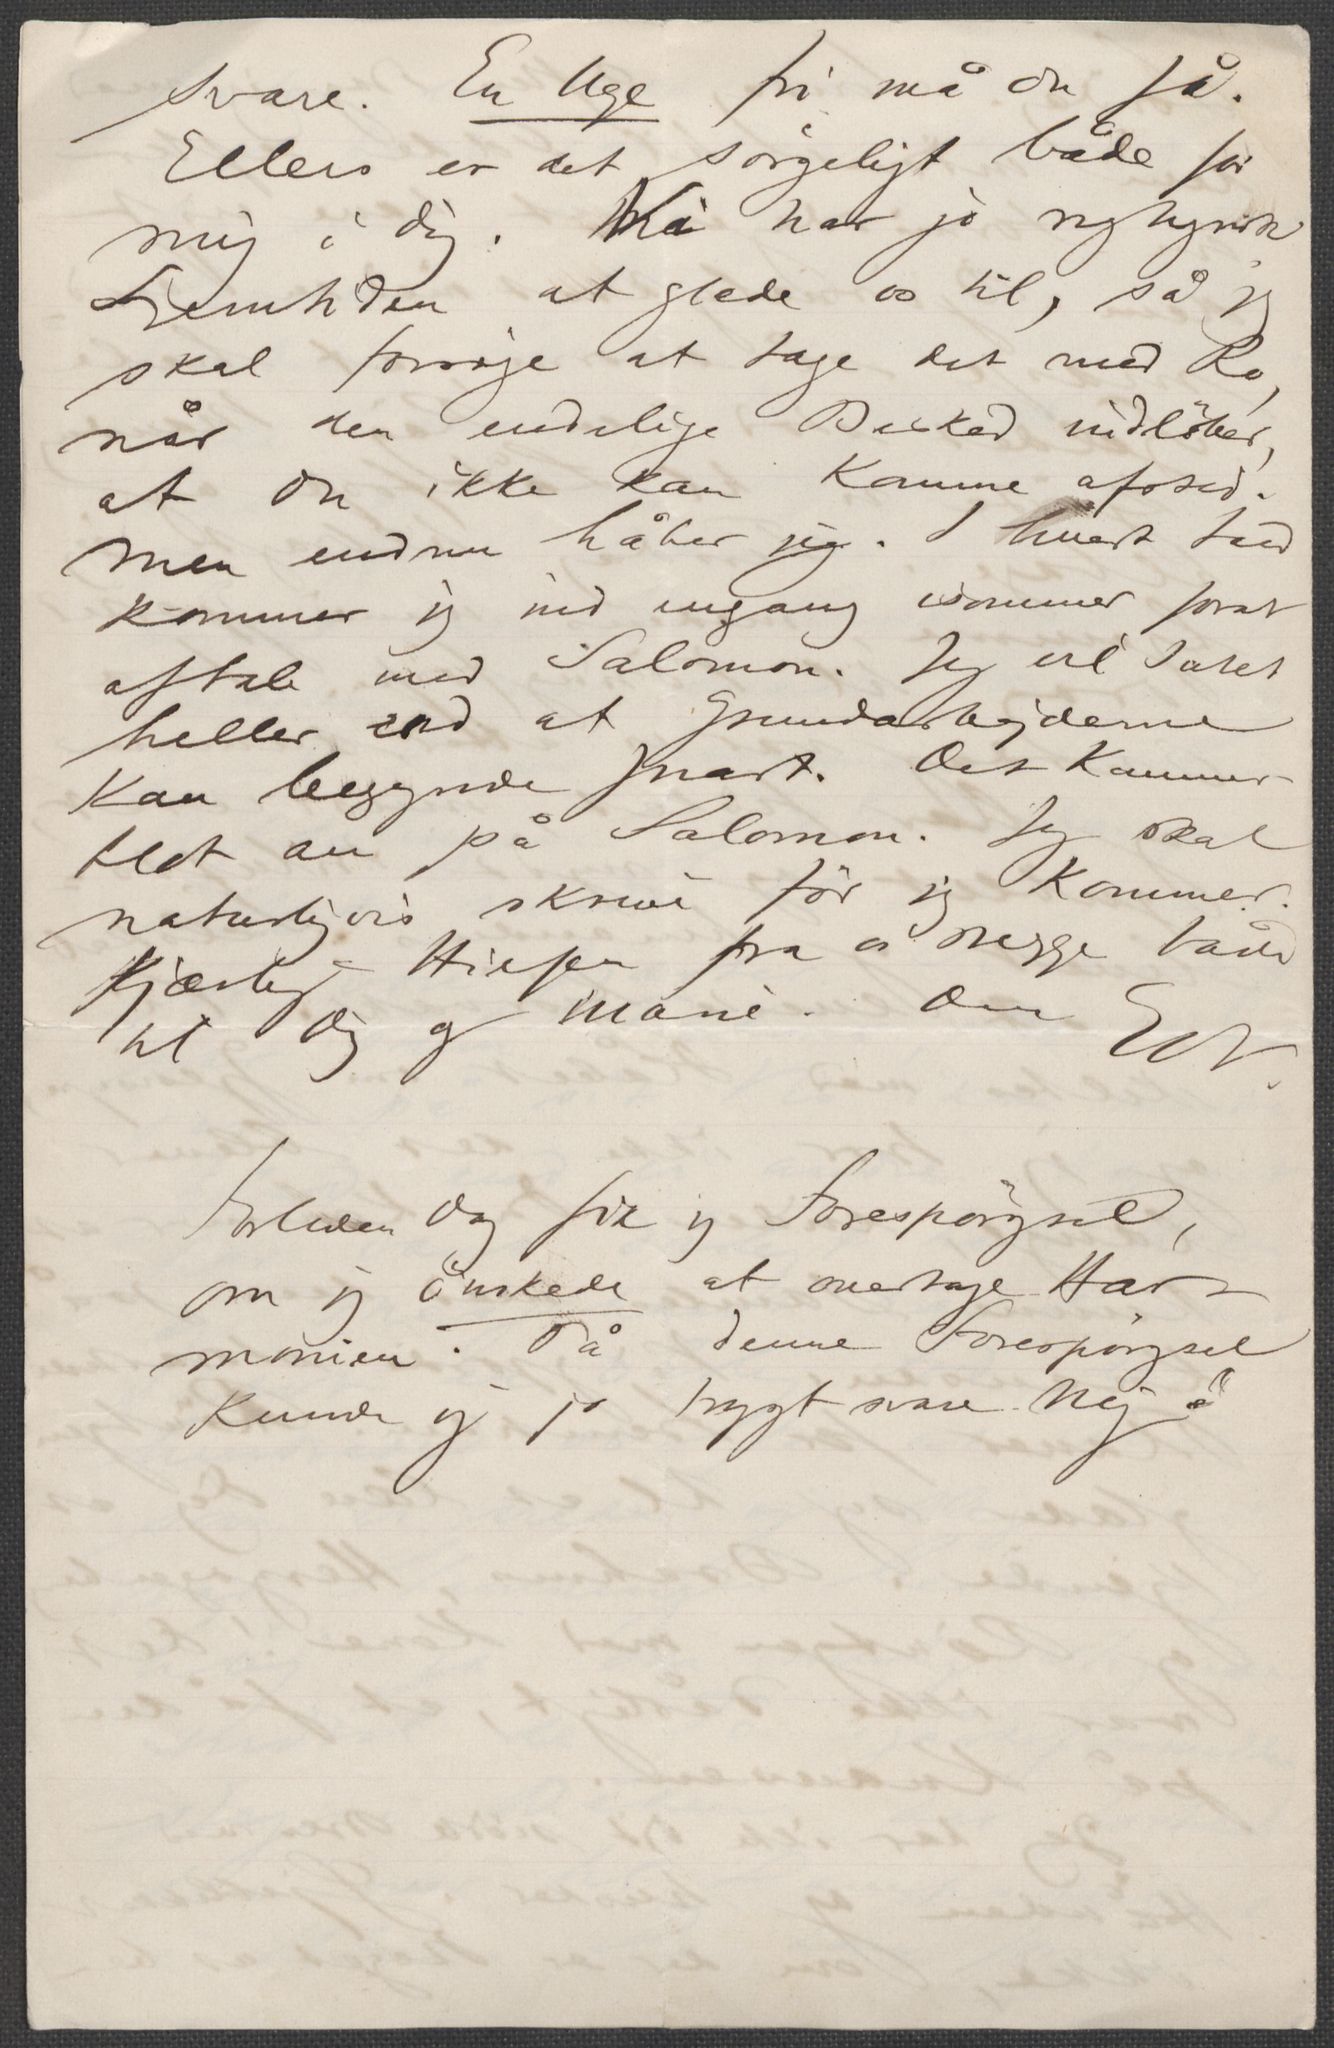 svare. En Uge fri må du få.
Ellers er det sörgeligt både for
mig i dig. Vi har jo
Fremtiden at glæde os til, så jeg
skal forsöge at tage det med Ro,
når den endelige Besked indlöber,
at du ikke kan komme afsted.
Men endnu håber jeg. I hvert Fald
kommer jeg ind engang isommer forat
aftale med Salomon. Jeg vil intet
heller end at Grundarbejderne
kan begynde snart. Det kommer
blot an på Salomon. Jeg skal
naturligvis skrive för jeg kommer.
Kjærlig Hilsen fra os begge både
til dig og Marie. Din Edv.
Forleden Dag fik jeg Forespörgsel,
om jeg önskede at overtage Har-
monien. På denne Forespörgsel
kunde jeg jo trygt svare Nej!